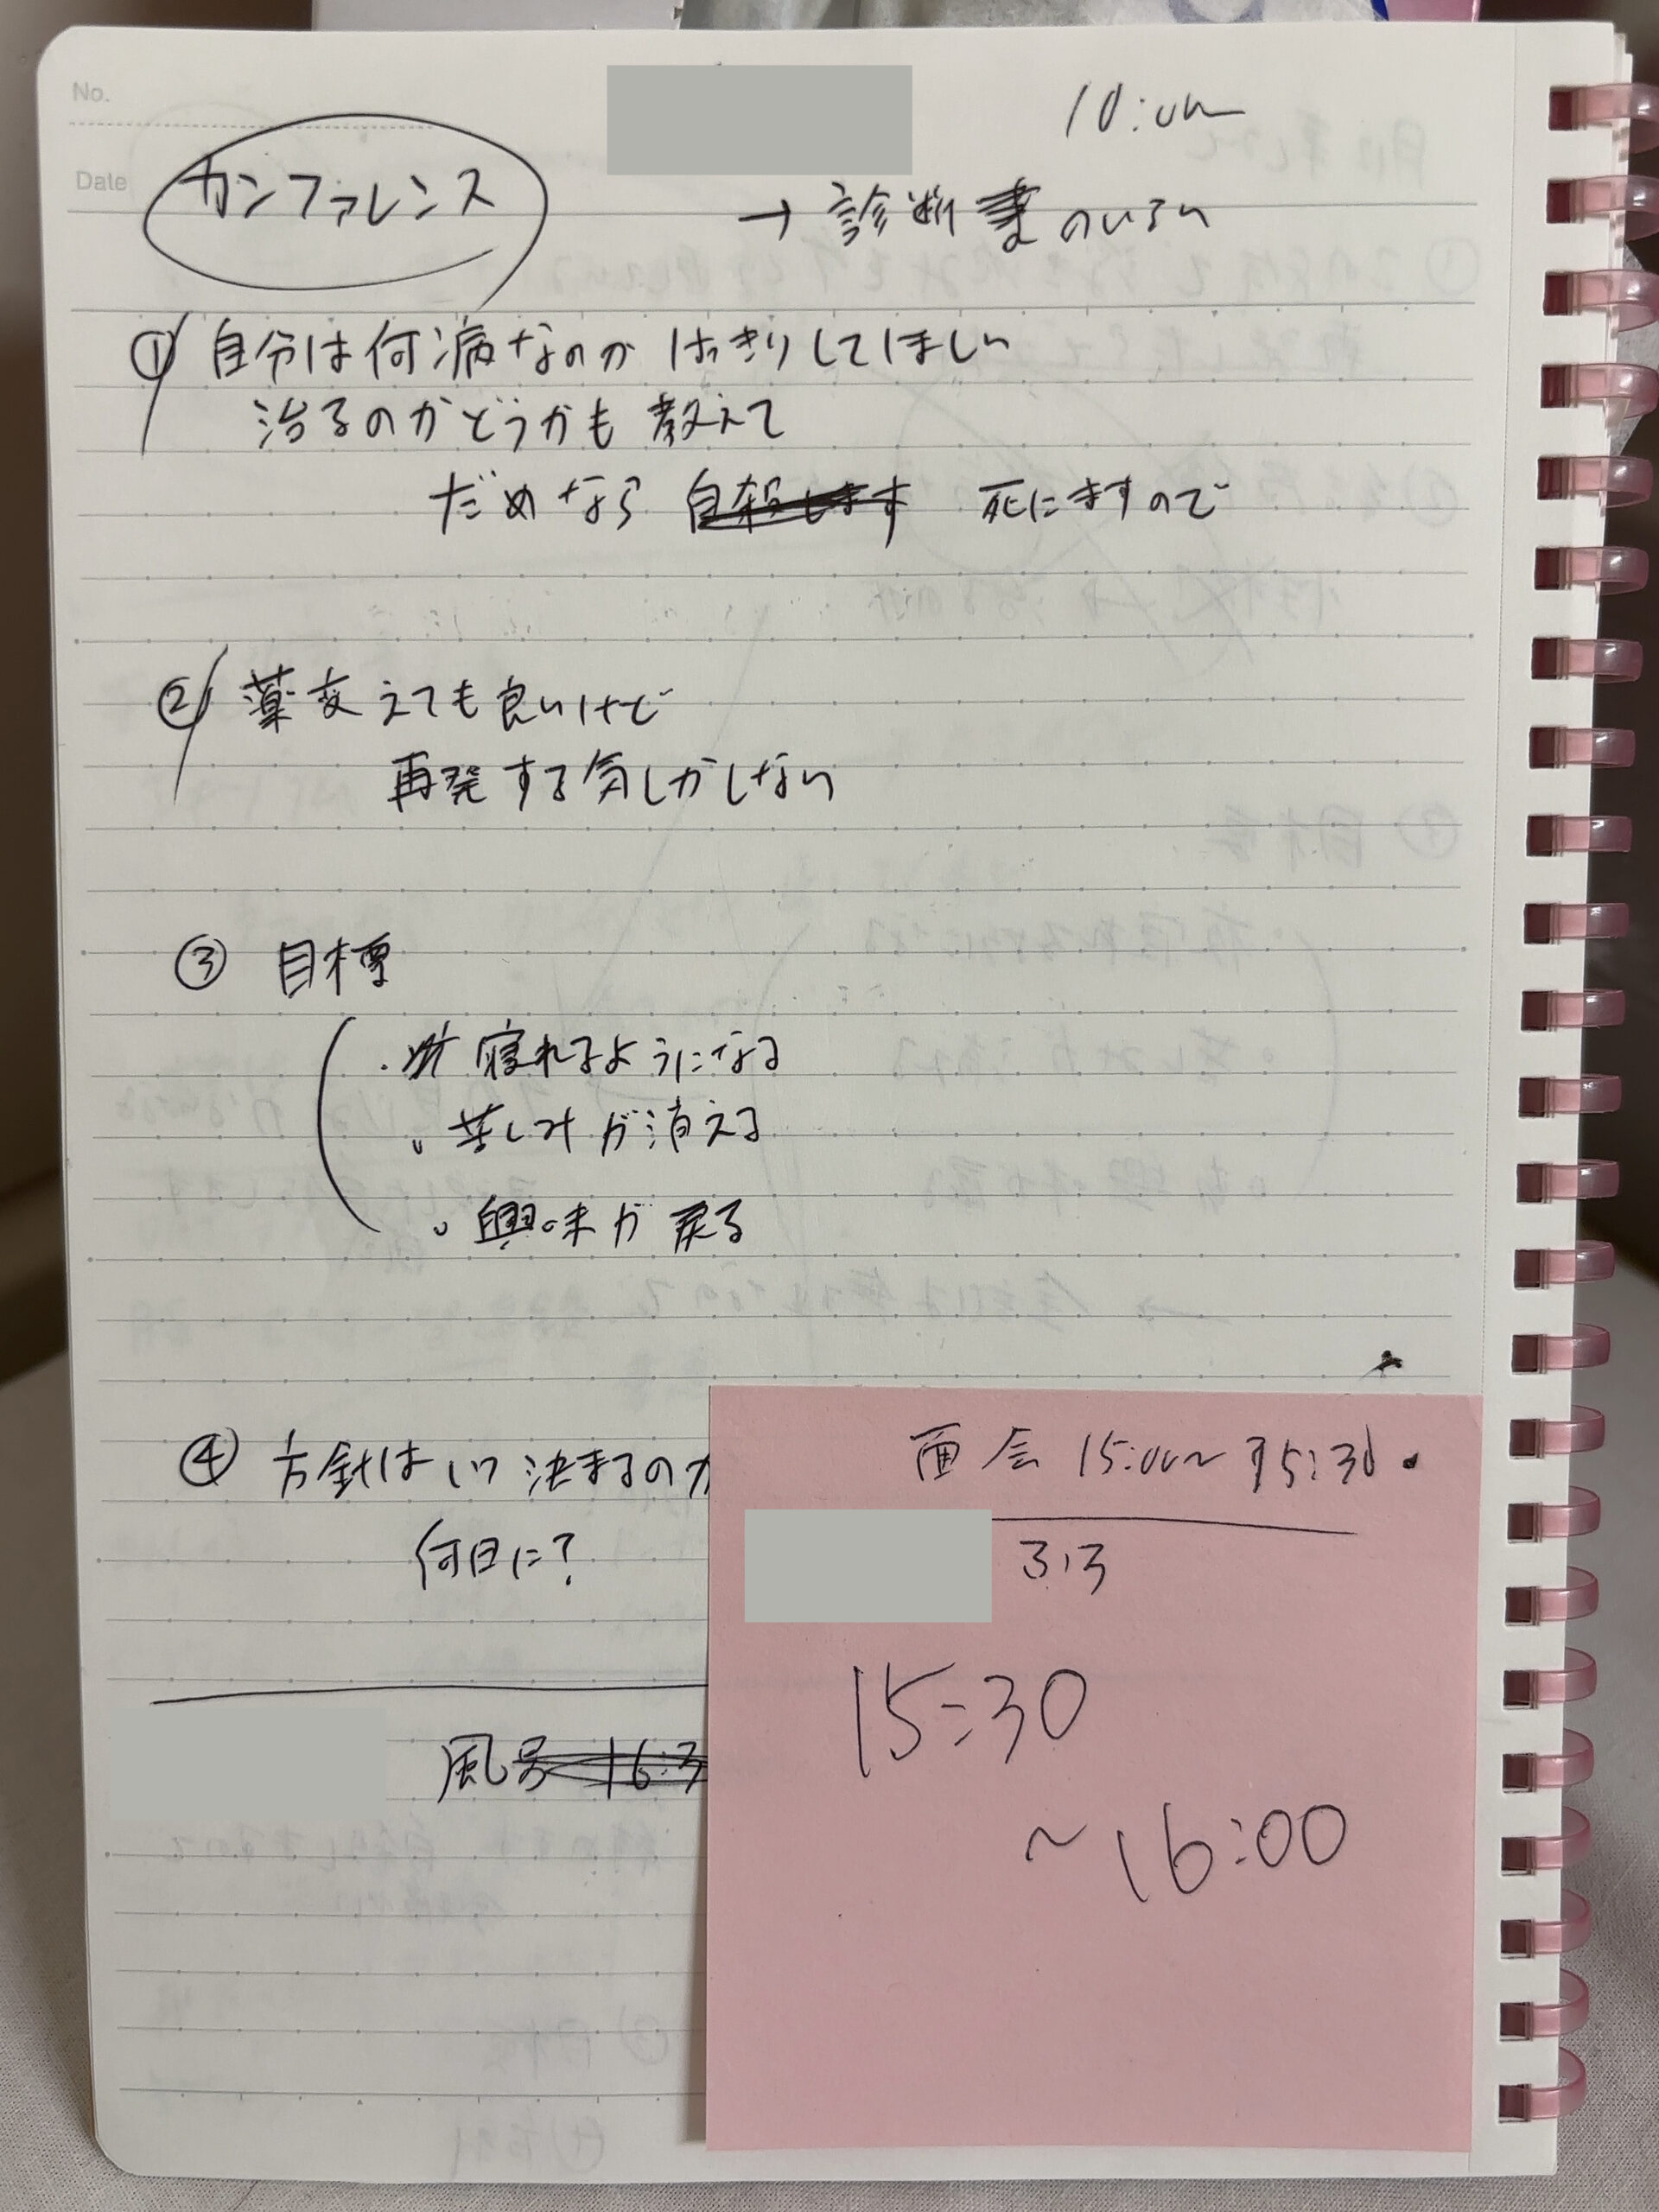 No.
Date
10:00~
カンファレンス
→ 診断書のいろい
① 自分は何病なのか はっきりしてほしい
治るのかどうかも 教えて
だめなら 自殺します 死にますので
② 薬変えても良いけど
再発する気しかしない
③ 目標
・寝れるようになる
・苦しみが消える
・興味が戻る
④ 方針はいつ決まるのか
何日に?
風呂 16:3
面会 15:00~15:30
313
15:30
~16:00